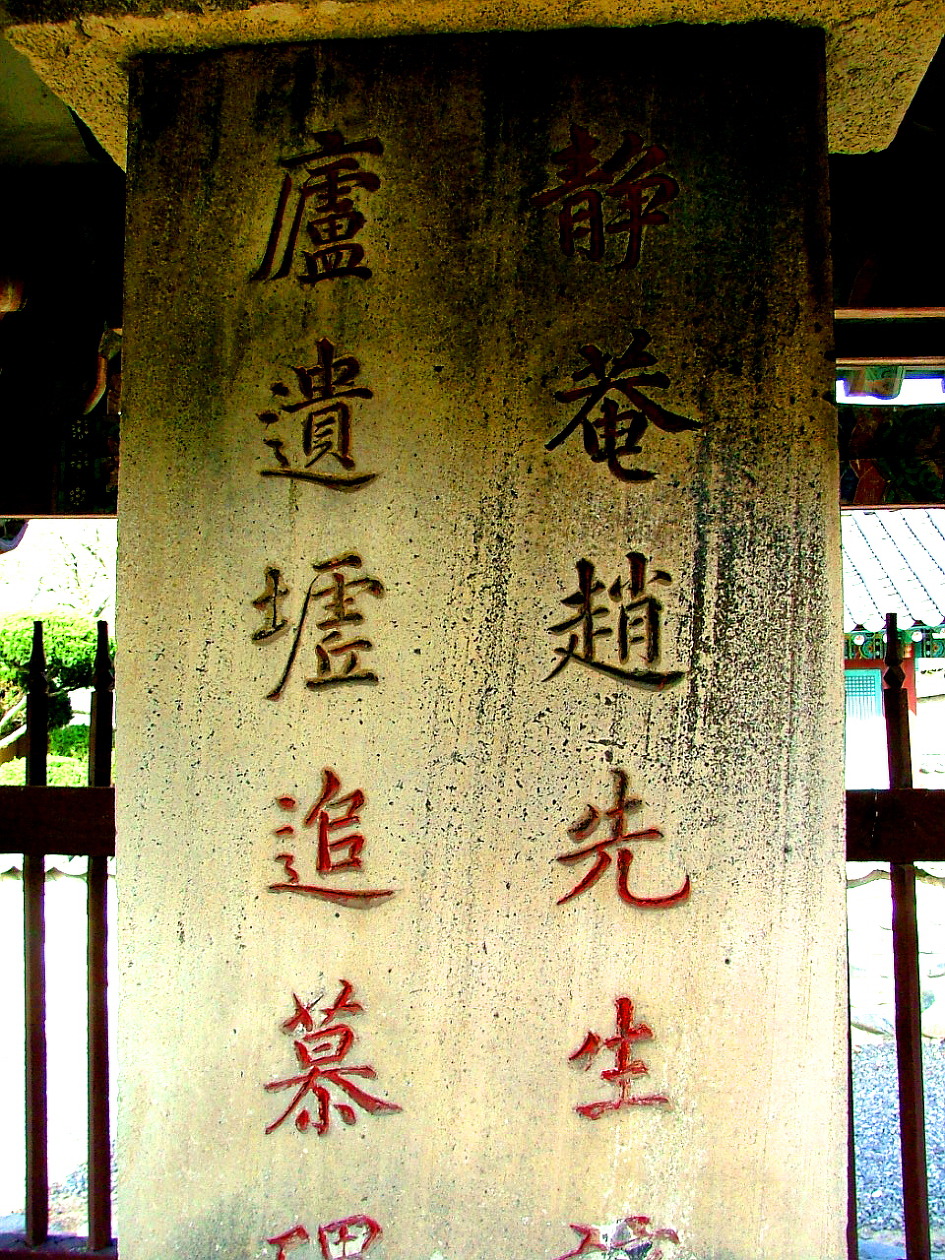 静菴趙先生
廬遺墟追慕